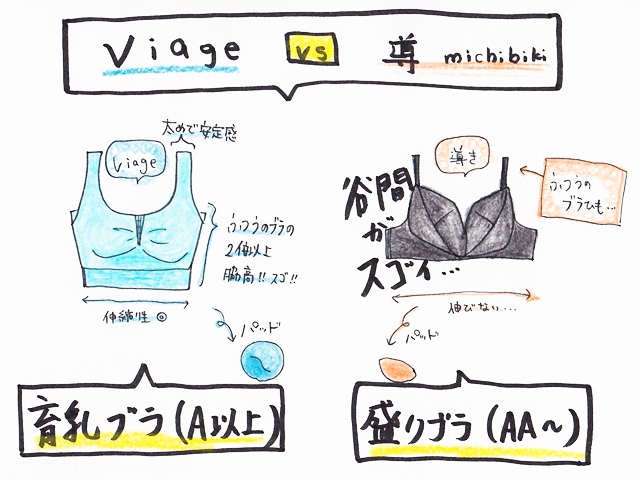 Viage vs 導 michibiki
太めで安定感
Viage
ふつうのブラの
2倍以上
脇高!!スゴ!!
伸縮性◎
パッド
育乳ブラ(A以上)
導き
谷間
が
スゴイ…
ふつうの
ブラひも…
伸びない…
パッド
盛りブラ(AA～)